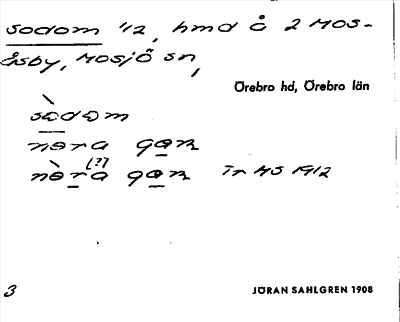 sodom 1/2, hmd å 2 Mos-
åsby, Mosjö sn,
Örebro hd, Örebro län
sòdom
nora gar
(?)
nòra gar Tr MS 1912
3
JÖRAN SAHLGREN 1908